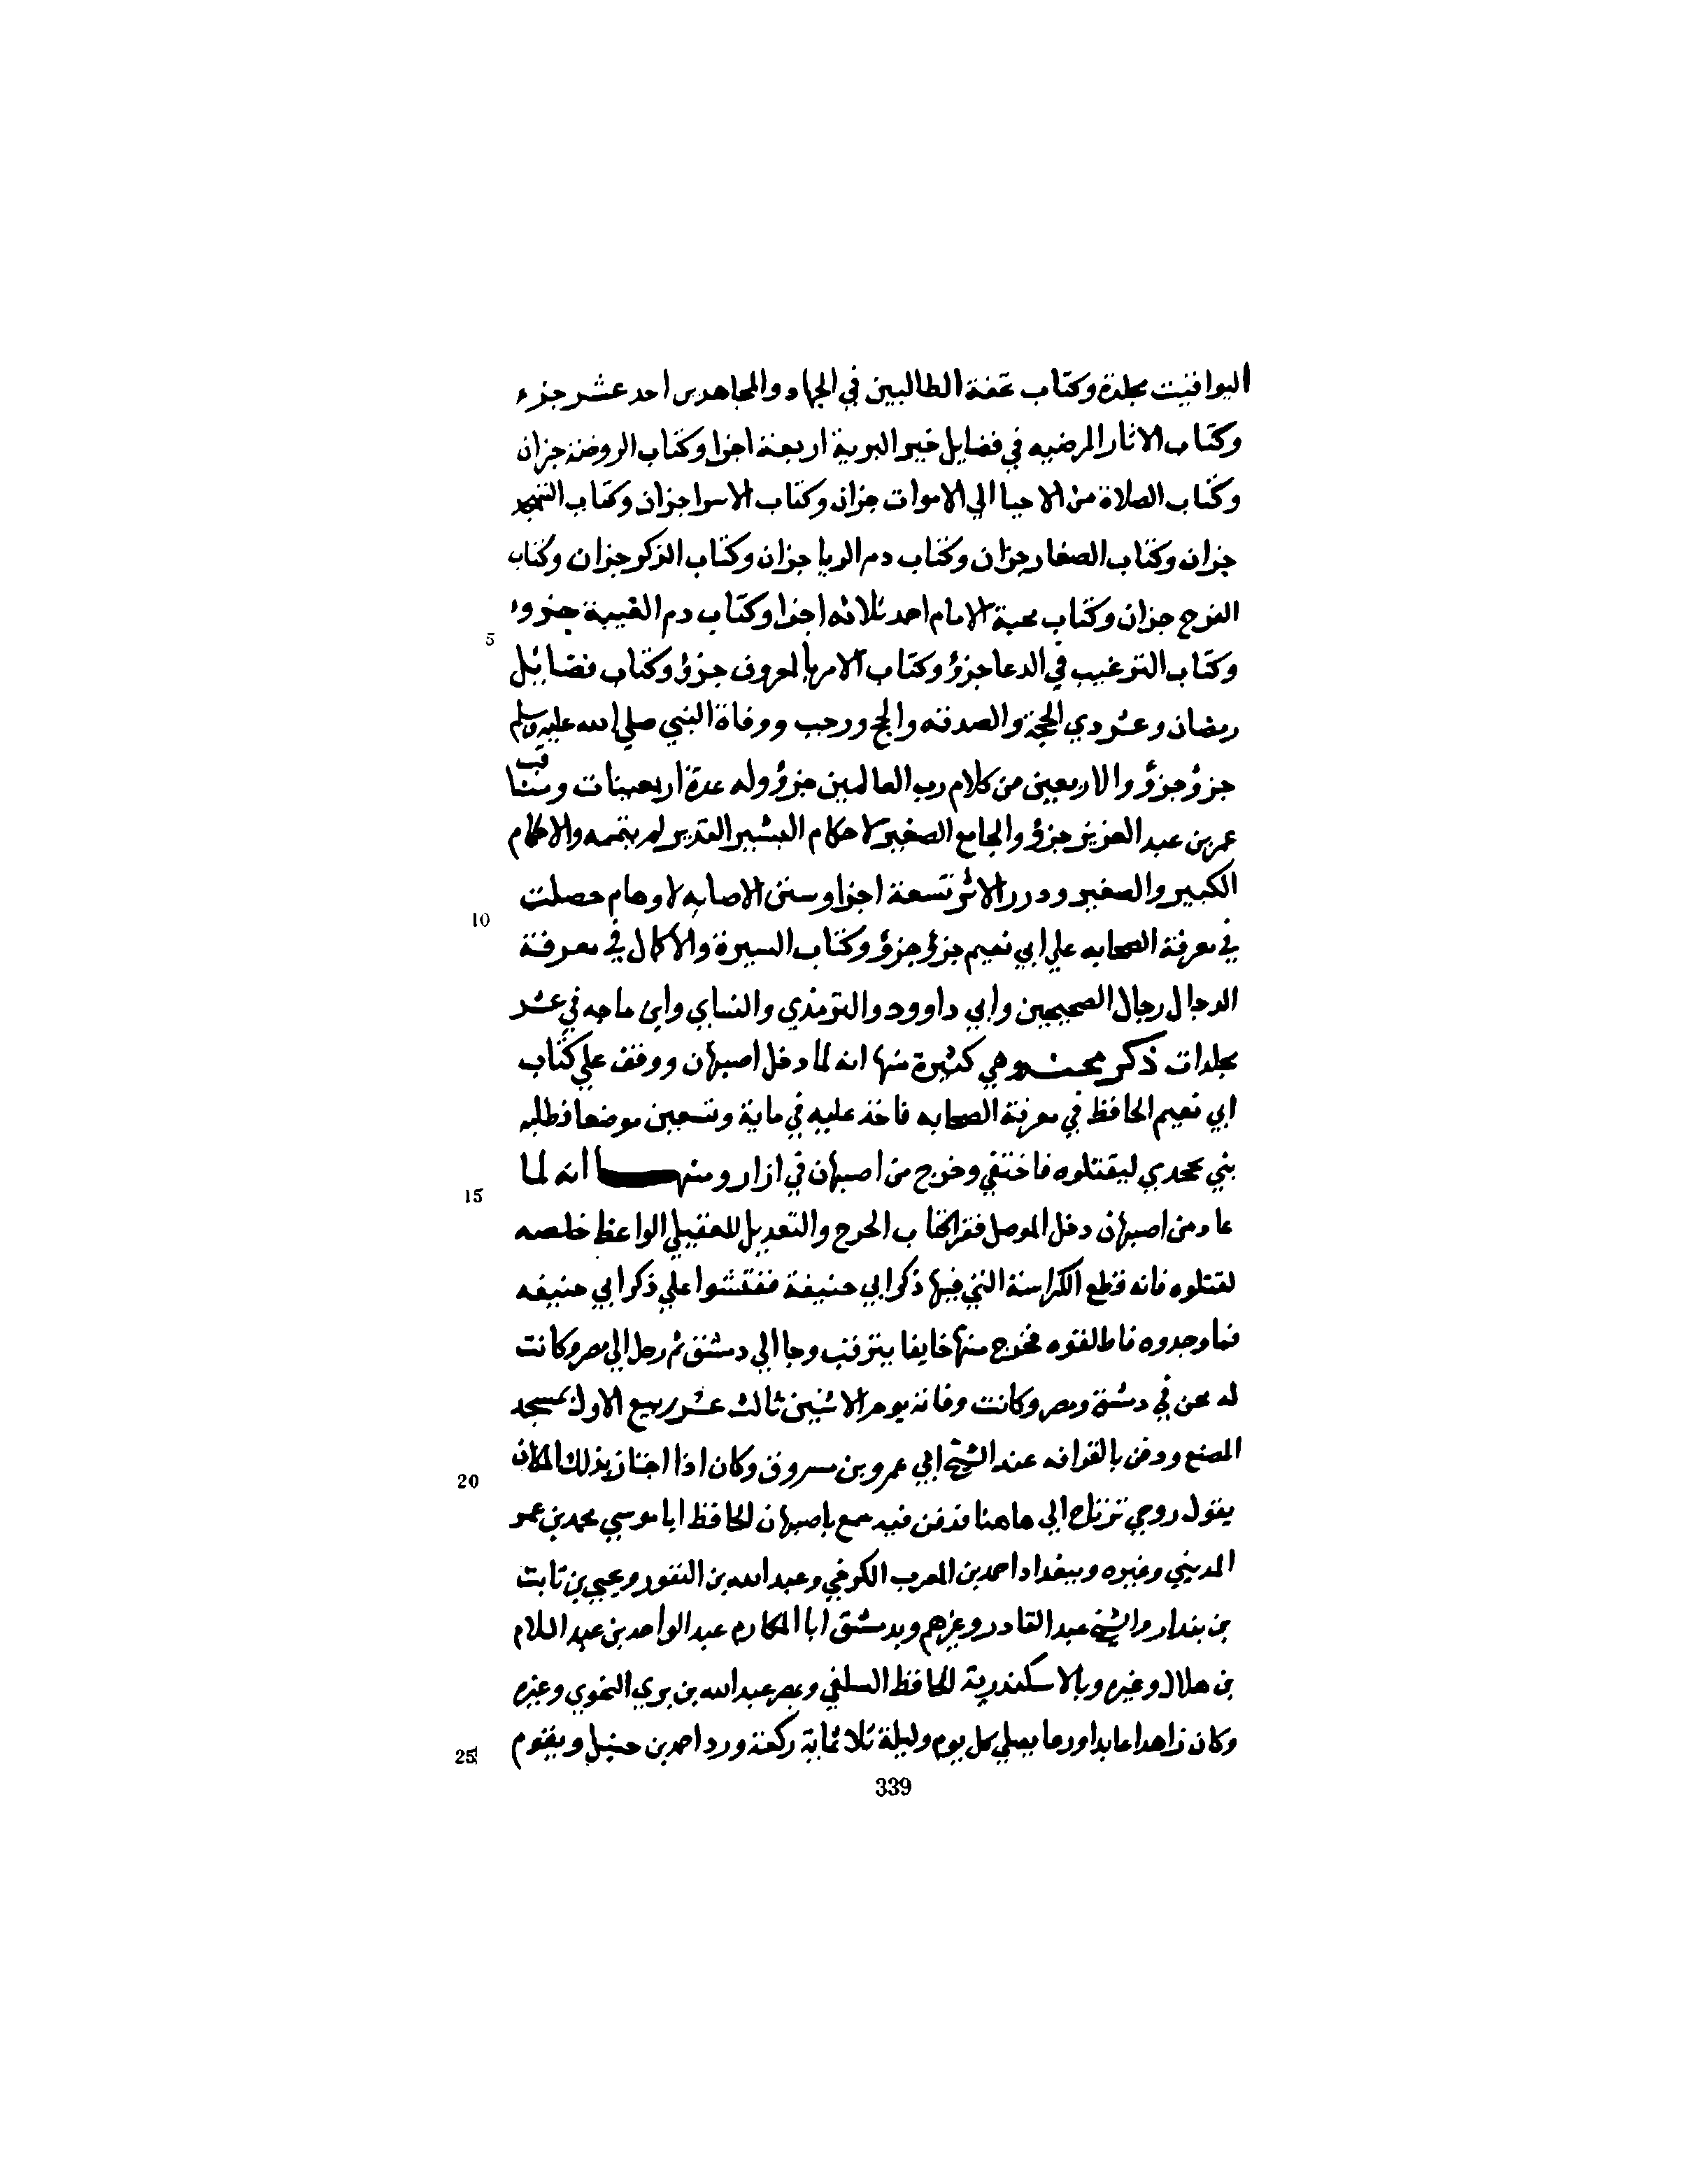 اليواقيت مجلدة وكتاب تحفة الطالبين في الجهاد والمجاهدين احد عشر جزء
وكتاب الاثار المرضيه في فضايل خير البرية اربعة اجزا وكتاب الروضة جزان
وكتاب الصلاة من الاحيا الي الاموات جزان وكتاب الاسرا جزان وكتاب التهجد
جزان وكتاب الصفات جزان وكتاب دم الريا جزان وكتاب الذكر جزان وكتاب
الفرج جزان وكتاب محبة الامام احمد ثلاثه اجزا وكتاب دم الغيبة جزوء
5
وكتاب الترغيب في الدعا جزؤ وكتاب الامر بالمعروف جزؤ وكتاب فضائل
رمضان وعشر دي الحجة والصدقه والحج ورجب ووفاة النبي صلي الله عليه وسلم
جزؤ جزؤ والاربعين من كلام رب العالمين جزؤ وله عدة اربعينات ومناقب
عمر بن عبد العزيز جزؤ والجامع الصغير لاحكام البشير النذير لم يتممه والاحكام
الكبير والصغير ودرر الاثر تسعة اجزا وسنن الاصابه لاوهام حصلت
10
في معرفة الصحابه علي ابي نعيم جزؤ جزؤ وكتاب السيرة والاكمال في معرفة
الرجال رجال الصحيحين وابي داوود والترمذي والنساي وابن ماجه في عشر
مجلدات ذكر محنه وهي كثيرة منها انه لما دخل اصبهان ووقف علي كتاب
ابي نعيم الحافظ في معرفة الصحابه فاخذ عليه في ماية وتسعين موضعا فطلبه
بني نجحدي ليقتلوه فاختفي وخرج من اصبهان في ازار ومنها انه لما
15
عاد من اصبهان دخل الموصل فقرا كتاب الجرح والتعديل للعقيلي الواعظ خلصه
لقتلوه فانه قطع الكراسة التي فيها ذكر ابي حنيفة ففتشوا علي ذكر ابي حنيفه
فما وجدوه فاطلقوه فخرج منها خايفا يترقب وجا الي دمشق ثم رحل الي مصر وكانت
له محن في دمشق ومصر وكانت وفاته يوم الاثنين ثالث عشر ربيع الاول بمسجد
المصنع ودفن بالقرافه عند الشيخ ابي عمرو بن مسروق وكان اذا اجتاز بذلك المكان
20
يقول روحي ترتاح الي هاهنا فدفن فيه سمع باصبهان الحافظ ابا موسي محمد بن عمر
المديني وغيره وببغداد احمد بن المعرب الكرخي وعبد الله بن النقور ويحيي بن ثابت
بن بندار والشيخ عبد القادر وغيرهم وبدمشق ابا المكارم عبد الواحد بن عبد السلام
بن هلال وغيره وبالاسكندرية الحافظ السلفي وبمصر عبد الله بن بري النحوي وغيره
وكان زاهدا عابدا ورعا يصلي كل يوم وليلة ثلاثماية ركعة ورد احمد بن حنبل ويقوم
25
339